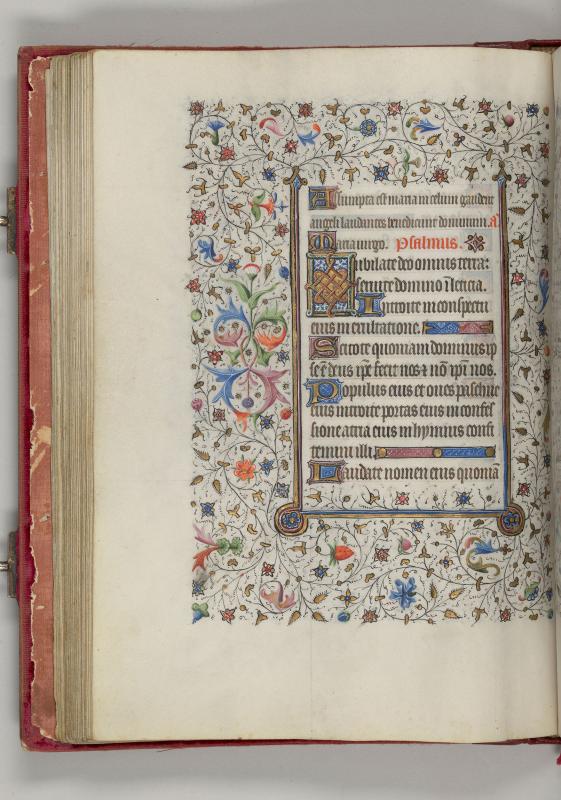 Assumpta est maria in celum gaudent
angeli laudantes benedicunt dominum. A̅.
Maria virgo. Psalmus.
Iubilate deo omnis terra:
seruite domino i̅ leticia.
Introite in conspectu
eius in exultatione.
Scitote quoniam dominus ip
se e̅ deus ip̅e fecit nos ⁊ no̅ ip̅i nos.
Populus eius et oues pascue
eius introite portas eius in confes
sione atria eius in hymnis confi
temini illi.
Laudate nomen eius quonia̅